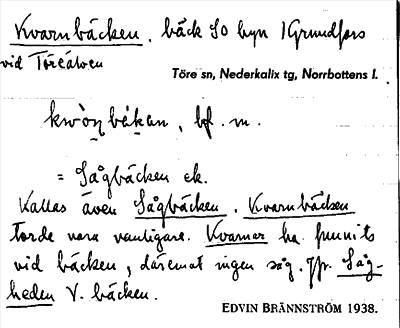 Kvarnbäcken. bäck SO byn i Grundfors
vid Töreälven
Töre sn, Nederkalix tg, Norrbottens l.
kwò̀ṇbäkan, bf. m.
= Sågbäcken ek.
Kallas även Sågbäcken. Kvarnbäcken
torde vara vanligare. Kvarnar ha funnits
vid bäcken, däremot ingen såg. Jfr. Såg-
heden V. bäcken.
EDVIN BRÄNNSTRÖM 1938.